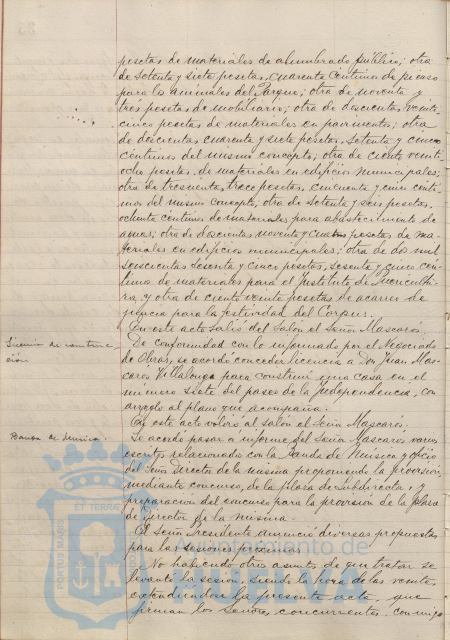 pesetas de materiales de alumbrado público; otra
de setenta y siete pesetas, cuarenta centimos de pienso
para los animales del Parque; otra de noventa y
tres pesetas de mobiliario; otra de doscientas veinti-
cinco pesetas de materiales en pavimentos; otra
de doscientas cuarenta y siete pesetas, setenta y cinco
centimos del mismo concepto; otra de ciento veinti-
ocho pesetas, de materiales en edificios municipales;
otra de trescientas trece pesetas, cincuenta y cinco centi-
mos del mismo concepto, otra de setenta y seis pesetas,
ochenta centimos de materiales para abastecimiento de
aguas; otra de doscientas noventa y cuatro pesetas de ma-
teriales en edificios municipales; otra de dos mil
seiscientas sesenta y cinco pesetas, sesenta y cinco cen-
timos de materiales para el Instituto de Puericultu-
ra, y otra de ciento veinte pesetas de acarreo de
para la festividad del Corpus.
En este acto salió del salón el Señor Mascaró.
Licencia de construc-
ción
De conformidad con lo informado por el Negociado
de Obras, se acordó conceder licencia a Don Juan Mas-
caró Villalonga para construir una casa en el
número siete del paseo de la Independencia, con
arreglo al plano que acompaña.
En este acto volvió al salón el Señor Mascaró.
Banda de música.
Se acordó pasar a informe del Señor Mascaró varios
escritos relacionado con la Banda de Música y oficio
del Señor Director de la misma proponiendo la provisión,
mediante concurso, de la plaza de Subdirector, y
preparación del concurso para la provisión de la plaza
de Director de la misma.
El Señor Presidente anunció diversas propuestas
para las sesiones próximas.
No habiendo otros asuntos de que tratar se
levantó la sesión, siendo la hora de las veinte,
extendiéndose la presente acta, que
firman los Señores concurrentes, conmigo
PORTUS MARIS ET TERRA
Ayuntamiento de